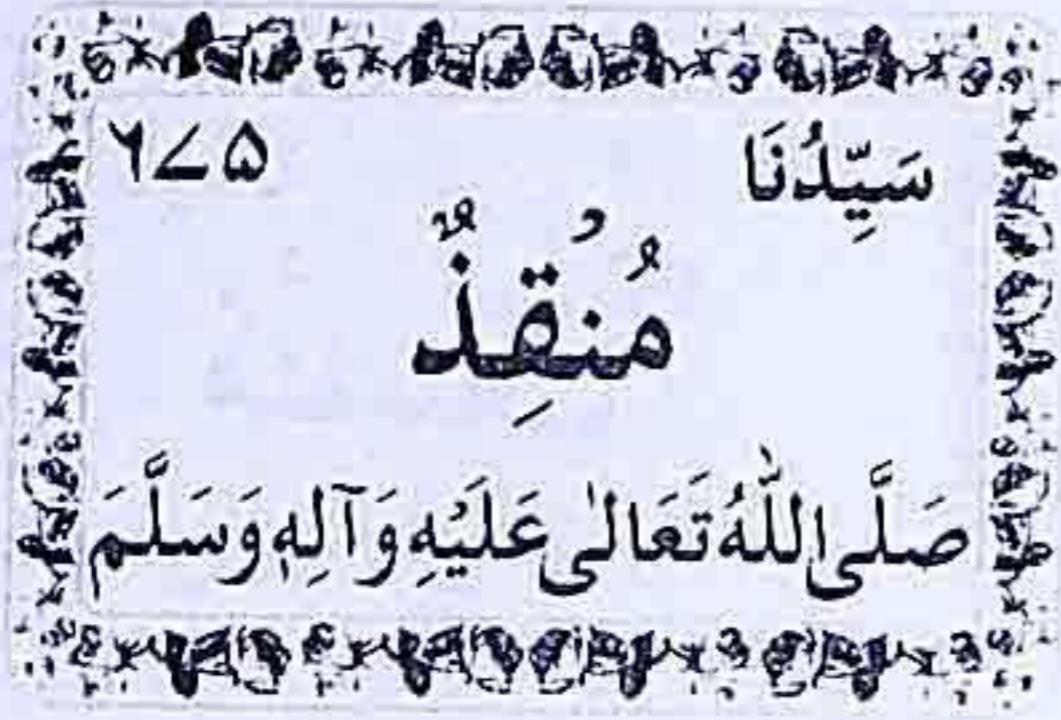 سَيِّدُنَا ۶۷۵
مُنْقِذٌ
صَلَّی اللّٰهُ تَعَالٰی عَلَيْهِ وَآلِهٖ وَسَلَّمَ